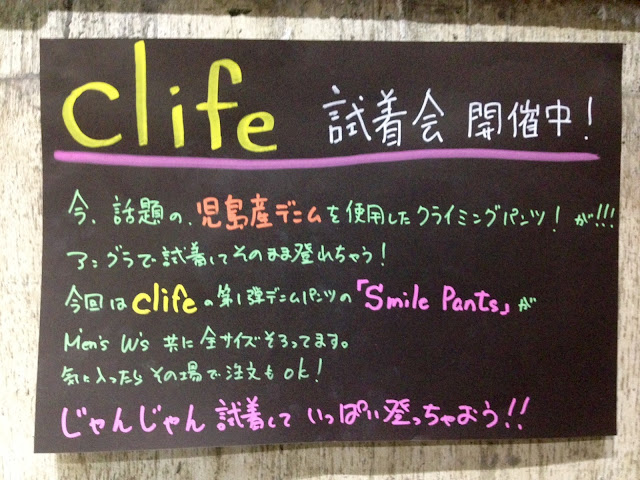 clife 試着会 開催中!
今、話題の、児島産デニムを使用したクライミングパンツ!が!!!
アングラで試着してそのまま登れちゃう!
今回はclifeの第1弾デニムパンツの「Smile Pants」が
Men's W's 共に全サイズそろってます。
気に入ったらその場で注文もok!
じゃんじゃん試着していっぱい登っちゃおう!!